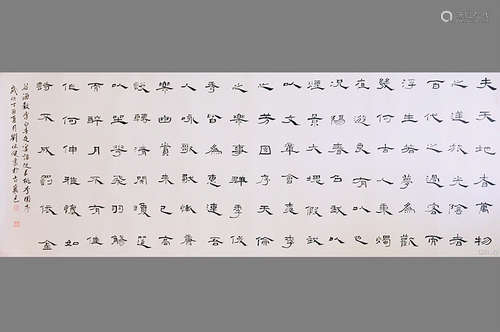 夫天地者萬物
之逆旅光陰者
百代之過客而
浮生若夢為歡
幾何古人秉燭
夜遊良有以也
況陽春召我以
煙景大塊假我
以文章會桃李
之芳園序天倫
之樂事群季俊
秀皆為惠連吾
人詠歌獨慚康
樂幽賞未已高
談轉清開瓊筵
以坐花飛羽觴
而醉月不有佳
作何伸雅懷如
詩不成罰依金
谷酒數李白春夜宴諸從弟桃李園序
歲次丁酉夏月劉書於古襄邑